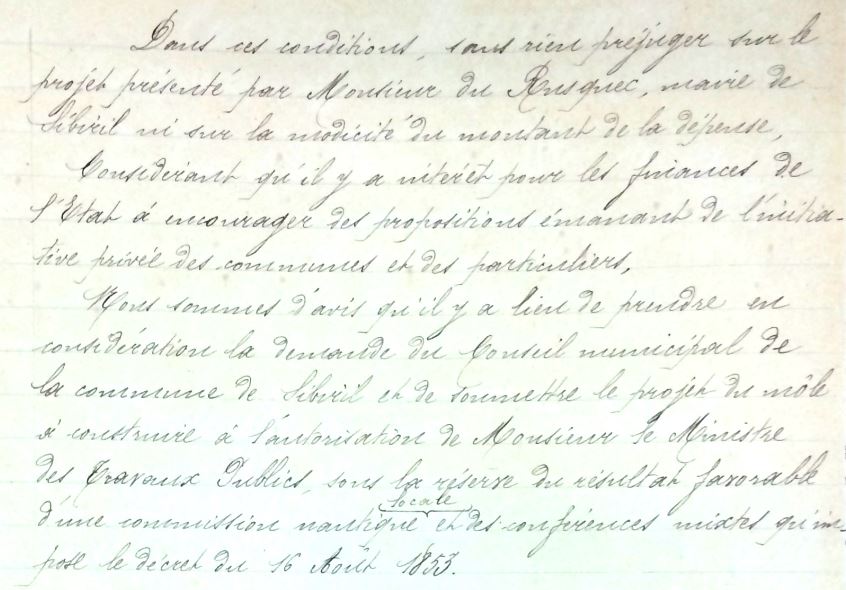 Dans ces conditions, sans rien préjuger sur le
projet présenté par Monsieur du Rusquec, maire de
Sibiril ni sur la modicité du montant de la dépense,
Considérant qu'il y a intérêt pour les finances de
l'Etat à encourager des propositions émanant de l'initia-
tive privée des communes et des particuliers,
Nous sommes d'avis qu'il y a lieu de prendre en
considération la demande du Conseil municipal de
la commune de Sibiril et de soumettre le projet du môle
à construire à l'autorisation de Monsieur le Ministre
des Travaux Publics, sous la réserve du résultat favorable
locale
d'une commission nautique et des conférences mixtes qu'im-
pose le décret du 16 Août 1853.